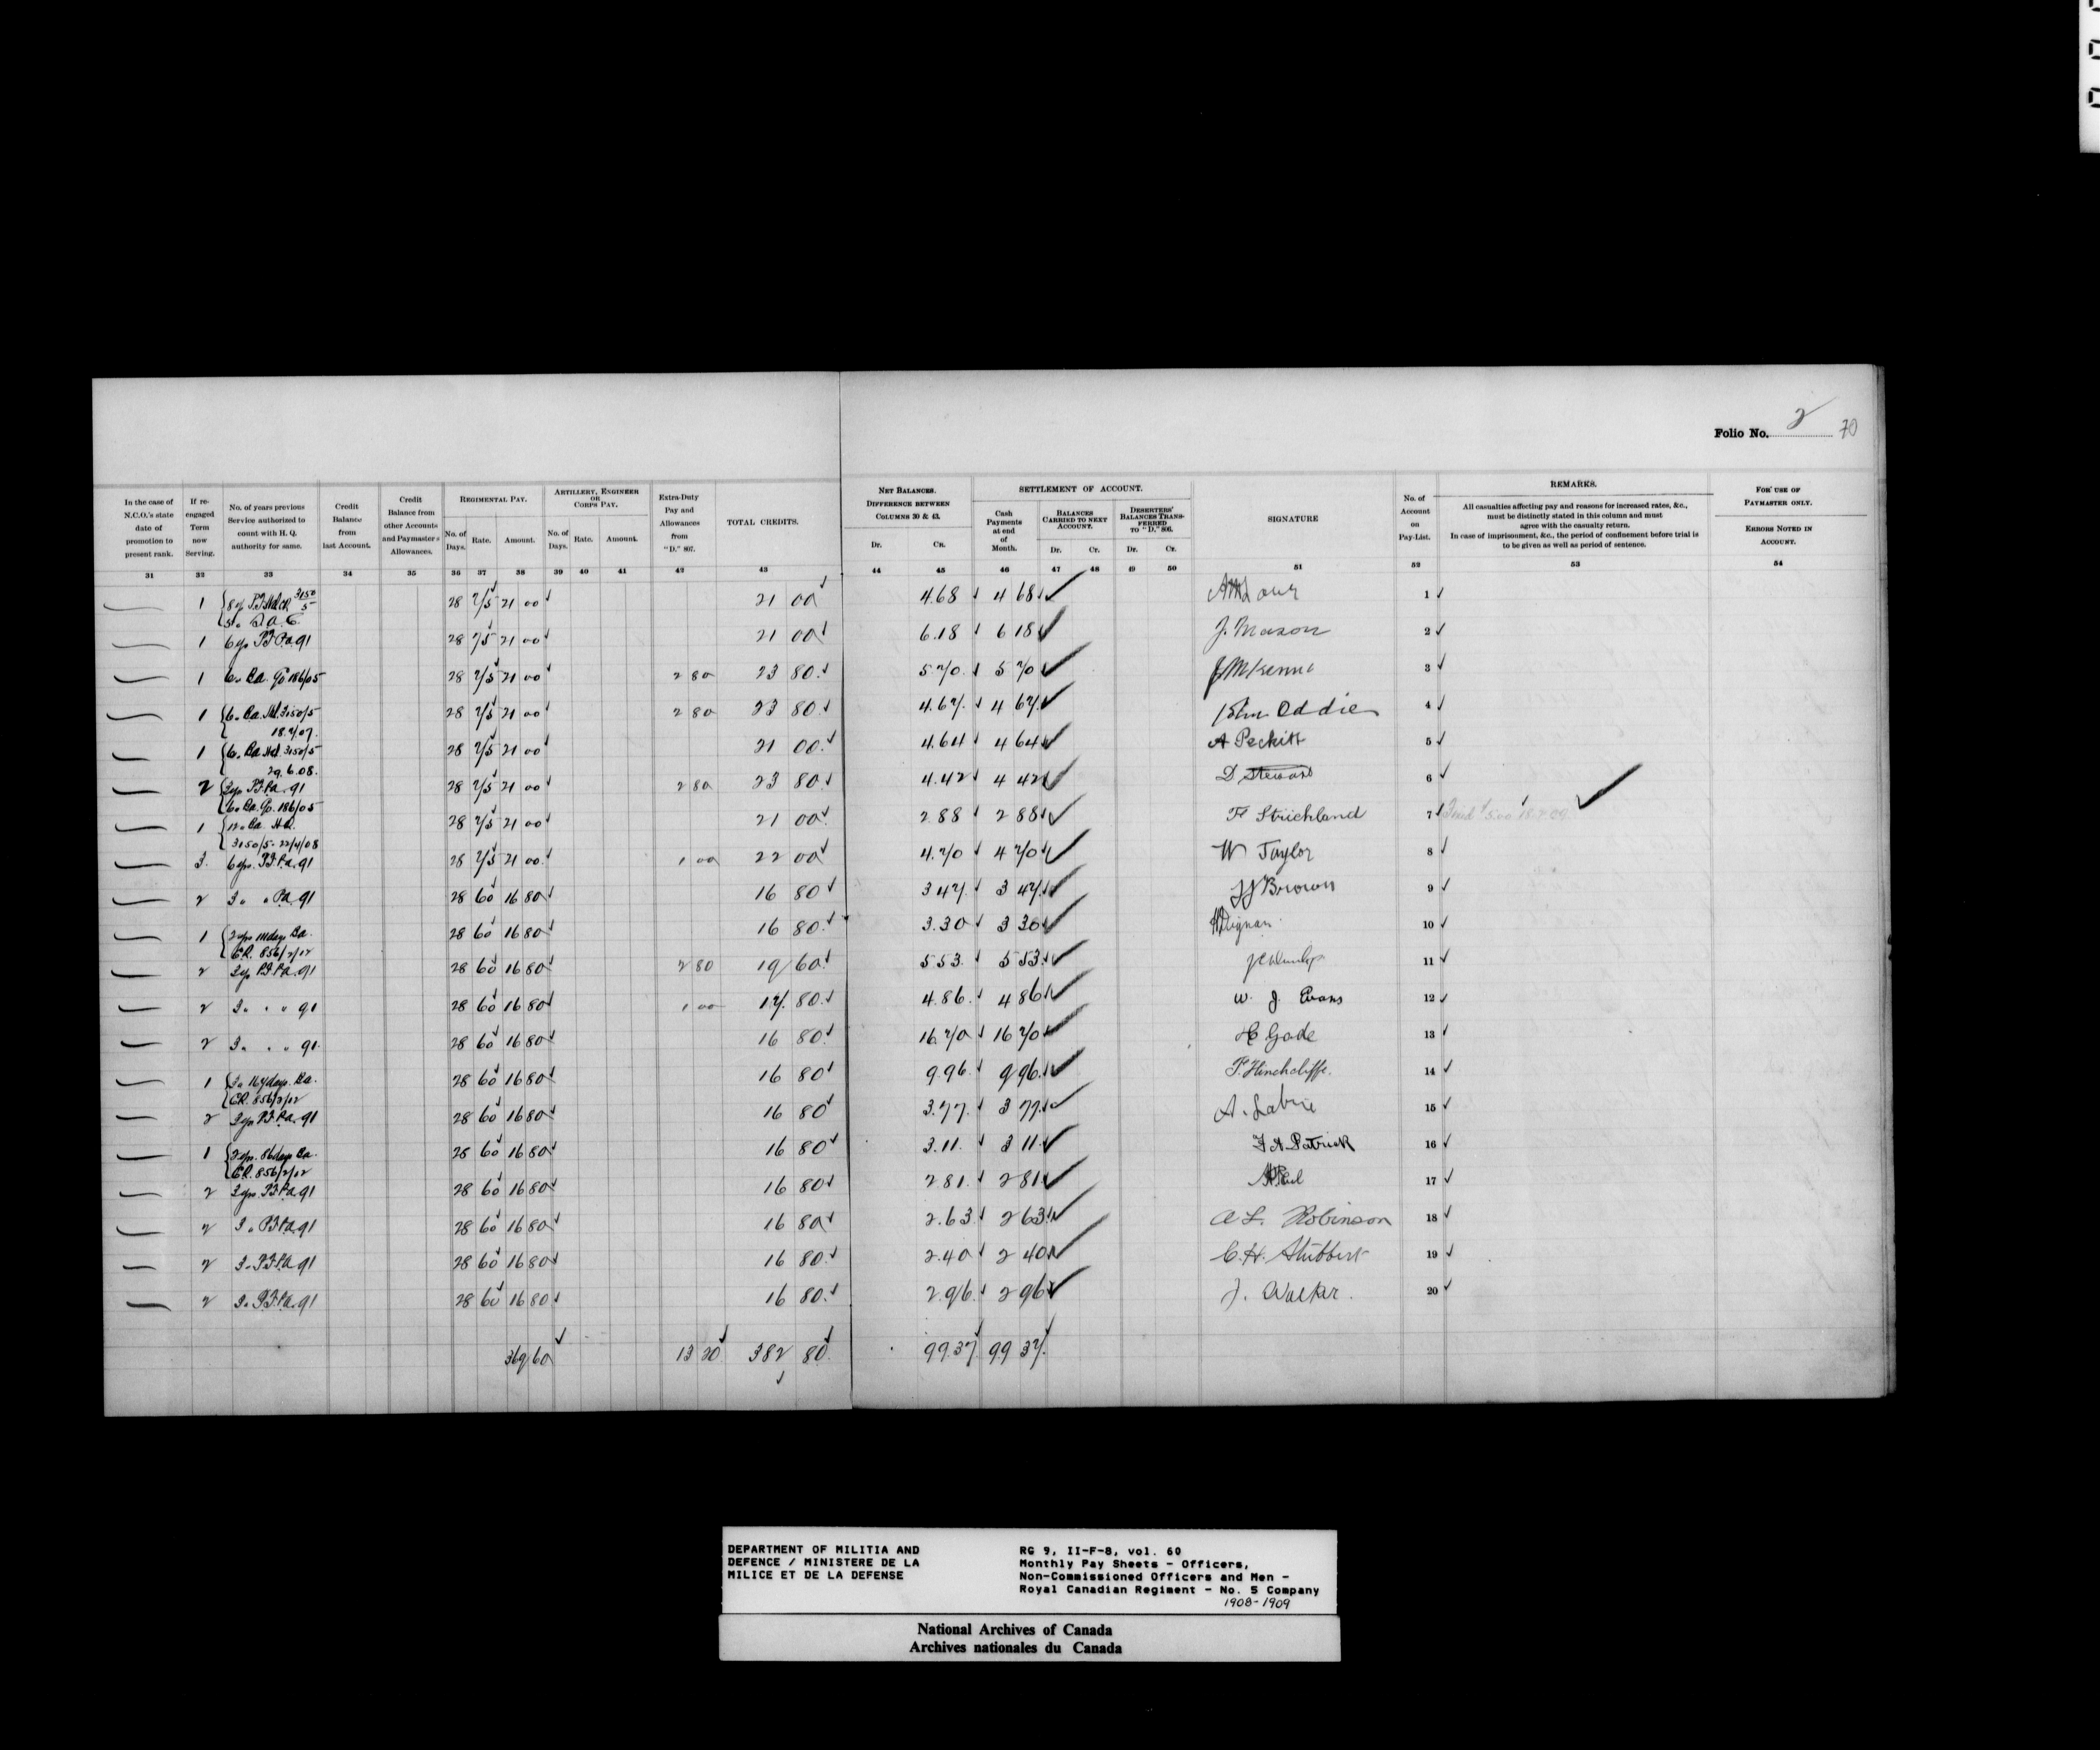 Folio No. 2 70
In the case of N.C.O.'s state date of promotion to present rank.
If re-engaged Term now Serving.
No. of years previous Service authorized to count with H. Q. authority for same.
Credit Balance from last Account.
Credit Balance from other Accounts and Paymaster's Allowances.
REGIMENTAL PAY.
No. of Days. Rate. Amount.
ARTILLERY, ENGINEER OR CORPS PAY.
No. of Days. Rate. Amount.
Extra-Duty Pay and Allowances from "D." 807.
TOTAL CREDITS.
NET BALANCES. DIFFERENCE BETWEEN COLUMNS 30 & 43.
Dr. Cr.
SETTLEMENT OF ACCOUNT.
Cash Payments at end of Month.
BALANCES CARRIED TO NEXT ACCOUNT.
Dr. Cr.
DESERTERS' BALANCES TRANSFERRED TO "D." 806.
Dr. Cr.
SIGNATURE
No. of Account on Pay-List.
REMARKS.
All casualties affecting pay and reasons for increased rates, &c., must be distinctly stated in this column and must agree with the casualty return.
In case of imprisonment, &c., the period of confinement before trial is to be given as well as period of sentence.
FOR USE OF PAYMASTER ONLY.
ERRORS NOTED IN ACCOUNT.
31 32 33 34 35 36 37 38 39 40 41 42 43 44 45 46 47 48 49 50 51 52 53 54
1 28 75 21 00 21 00 4.68 4 68 1
1 6 yrs P.F. Pa. 91 28 75 21 00 21 00 6.18 6 18 J. Mason 2
1 6 " Pa. 186/05 28 75 21 00 2 80 23 80 5.70 5 70 3
1 6 " Pa. 3150/5 18.7.07. 28 75 21 00 2 80 23 80 4.67 4 67 John Oddie 4
1 6 " Pa. 3150/5 29.6.08. 28 75 21 00 21 00 4.64 4 64 A Peckitt 5
2 3 yrs P.F. Pa. 91 6 " Pa. 186/05 28 75 21 00 2 80 23 80 4.42 4 42 D Steward 6
1 12 " Pa. 3150/5 - 22/4/08 28 75 21 00 21 00 2 88 2 88 F Strickland 7
3 6 yrs. P.F. Pa. 91 28 75 21 00 1 00 22 00 4.70 4 70 W Taylor 8
2 3 " " Pa. 91 28 60 16 80 16 80 3 47 3 47 Brown 9
1 2 yrs 111 days Pa. C.R. 856/2/02 28 60 16 80 16 80 3.30 3 30 10
2 3 yrs P.F. Pa. 91 28 60 16 80 2 80 19 60 5 53 5 53 11
2 3 " " " 91 28 60 16 80 1 00 17 80 4.86 4 86 W. J. Evans 12
2 3 " " " 91 28 60 16 80 16 80 16 70 16 70 H Gade 13
1 3 " 164 days Pa. C.R. 856/2/02 28 60 16 80 16 80 9.96 9 96 F. Hinchcliffe. 14
2 3 yrs P.F. Pa. 91 28 60 16 80 16 80 3.77 3 77 A. Labrie 15
1 2 yrs. 86 days Pa. C.R. 856/2/02 28 60 16 80 16 80 3.11 3 11 F A Patrick 16
2 3 yrs P.F. Pa. 91 28 60 16 80 16 80 2 81 2 81 17
2 3 " P.F. Pa. 91 28 60 16 80 16 80 2.63 2 63 A L. Robinson 18
2 3 " P.F. Pa. 91 28 60 16 80 16 80 2.40 2 40 C. H. Stubbert 19
2 3 " P.F. Pa. 91 28 60 16 80 16 80 2.96 2 96 J. Walker. 20
369 60 13 20 382 80 99.37 99 37
DEPARTMENT OF MILITIA AND
DEFENCE / MINISTERE DE LA
MILICE ET DE LA DEFENSE
RG 9, II-F-8, vol. 60
Monthly Pay Sheets - Officers,
Non-Commissioned Officers and Men -
Royal Canadian Regiment - No. 5 Company
1908-1909
National Archives of Canada
Archives nationales du Canada